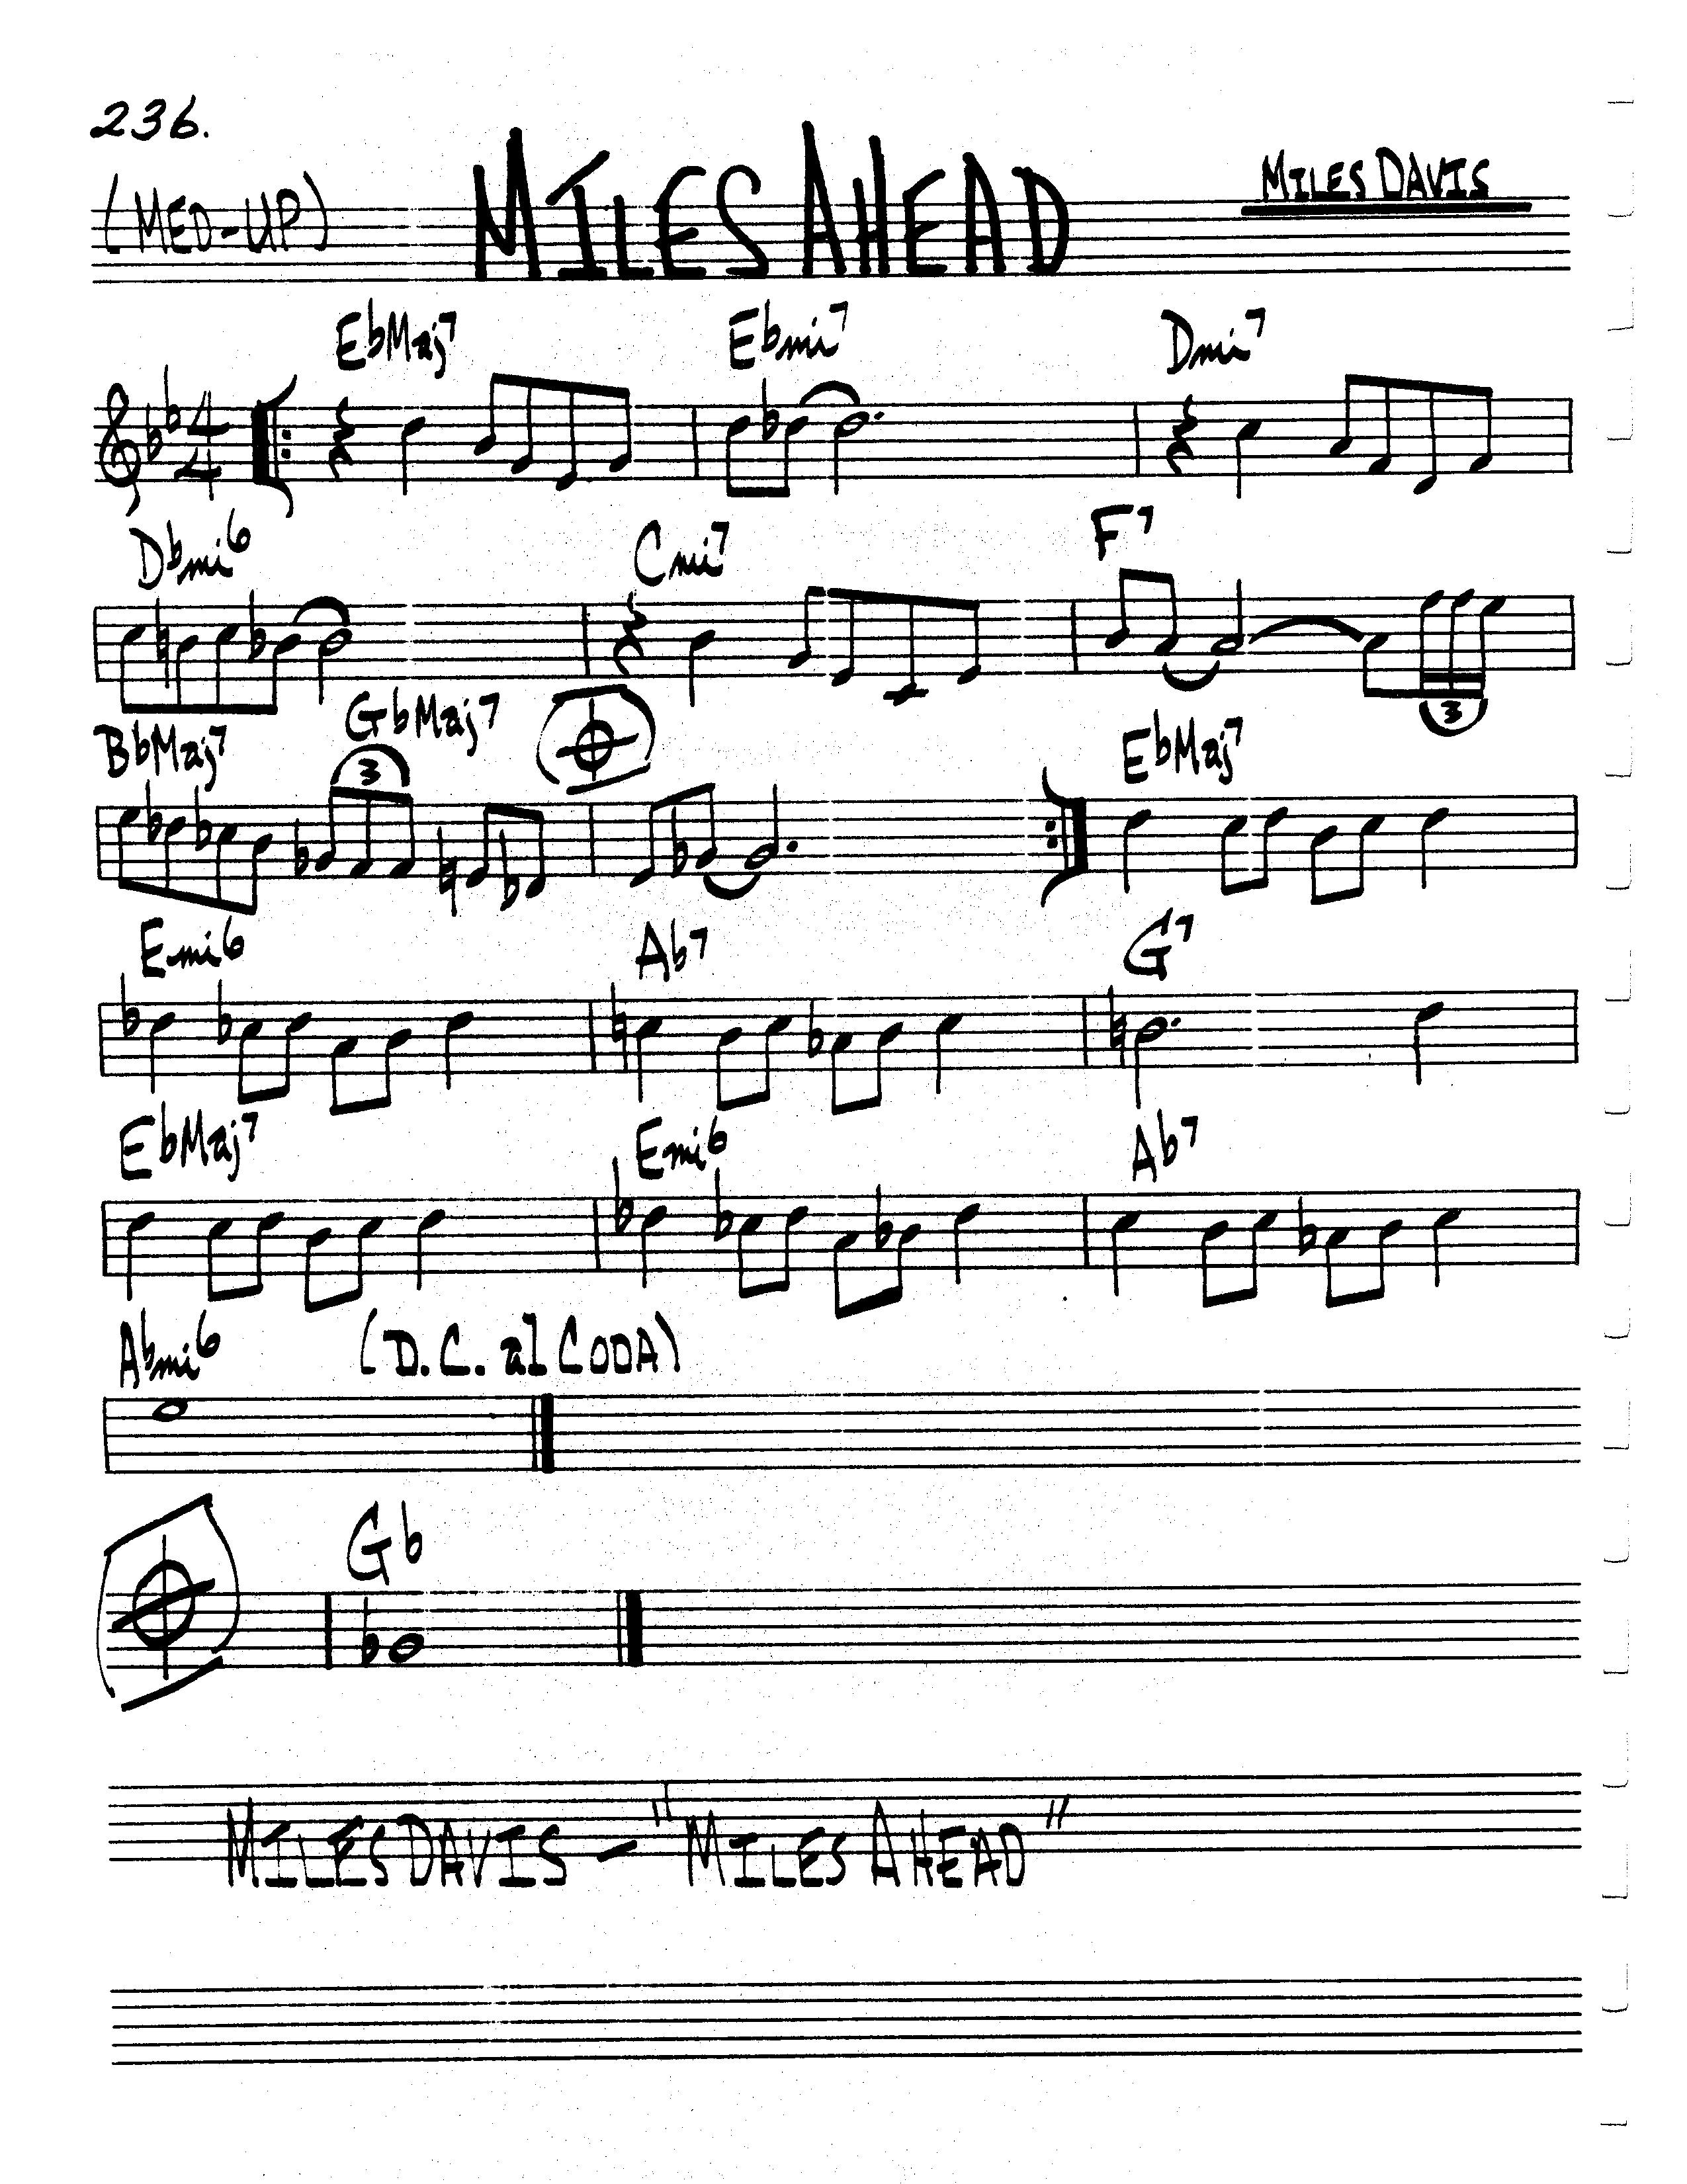 236.
(MED-UP) MILES AHEAD MILES DAVIS
EbMaj7 Ebmi7 Dmi7
4
4
Dbmi6 Cmi7 F7
3
BbMaj7 GbMaj7 EbMaj7
3
Emi6 Ab7 G7
EbMaj7 Emi6 Ab7
Abmi6 (D.C. al CODA)
Gb
MILES DAVIS - "MILES AHEAD"